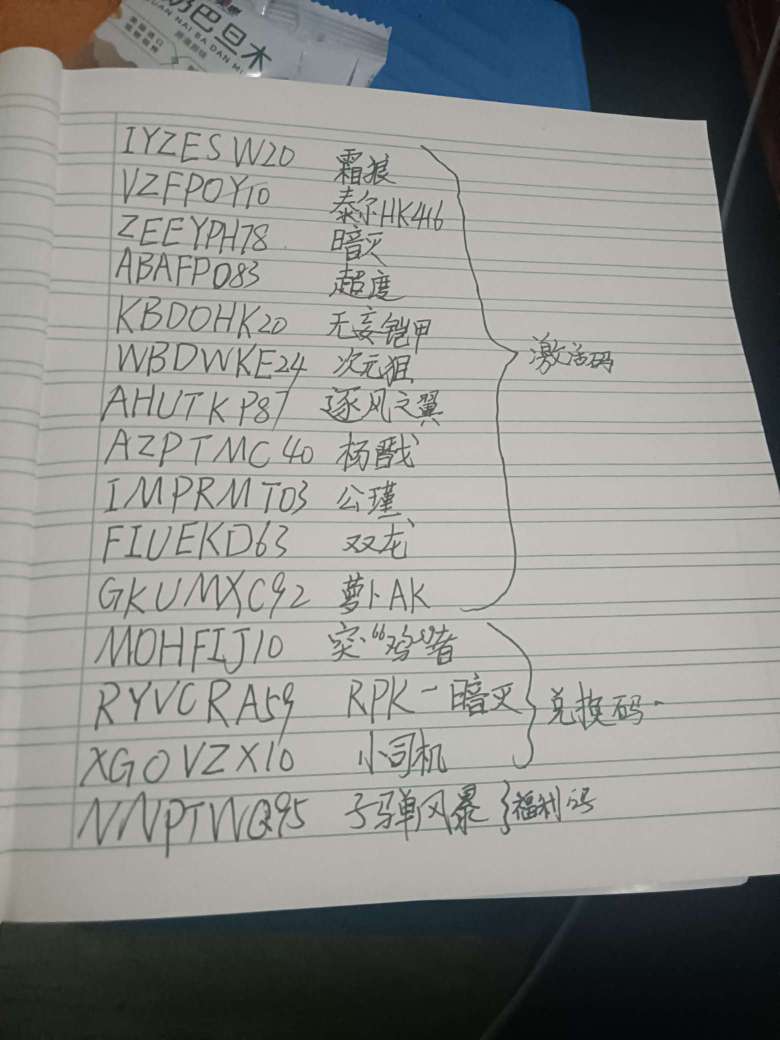 奶巴旦木
IYZESW20 霜狼
VZFPOY10 泰尔HK416
ZEEYPH78 暗灭
ABAFPD83 超度
KBDOHK20 无妄铠甲
WBDWKE24 次元狙
激活码
AHUTKP87 逐风之翼
AZPTMC40 杨戬
IMPRMT03 公瑾
FIUEKD63 双龙
GKUMXC92 萝卜AK
MOHFIJ10 突“鸡”者
RYVCRA59 RPK-暗灭 兑换码.
XGOVZX10 小司机
NNPTWQ95 子弹风暴 福利码